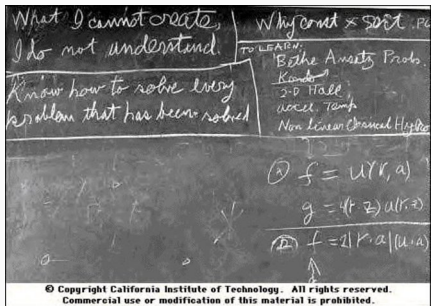 What I cannot create,
I do not understand.
Know how to solve every
problem that has been solved
Why const × sort . PO
TO LEARN:
Bethe Ansatz Prob.
Kondo
2-D Hall
accel. Temp
Non Linear Classical Hydro
Ⓐ f = U(r, a)
g = 4(r·z) u(r, z)
Ⓑ f = 2|r·a|(u·a)
© Copyright California Institute of Technology. All rights reserved.
Commercial use or modification of this material is prohibited.